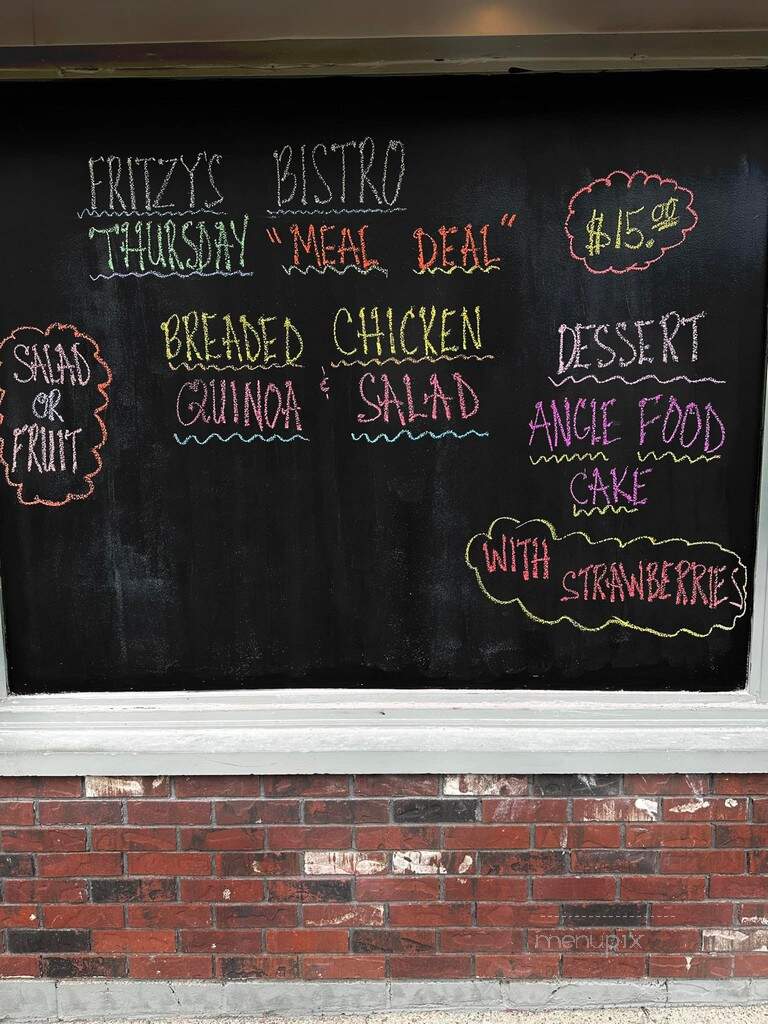 FRITZY'S BISTRO
THURSDAY "MEAL DEAL"
$15.00
SALAD
OR
FRUIT
BREADED CHICKEN
QUINOA & SALAD
DESSERT
ANGLE FOOD
CAKE
WITH STRAWBERRIES
menupix